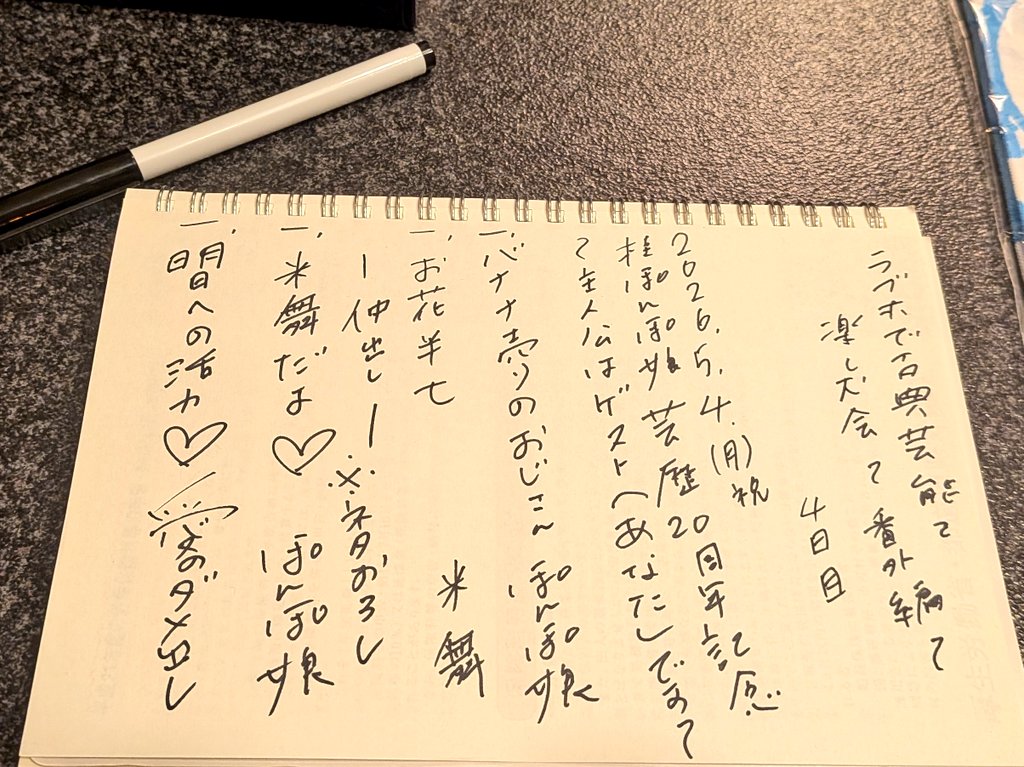 ラブホで古典芸能て
楽し犬会て番外編て
4日目
2026.5.4.(月)祝
桂ぽんぽ娘芸歴20周年記念
て主人公はゲスト(あなた)ですて
一、バナナ売りのおじさん ぽんぽ娘
一、お花半七 米舞
ー仲出しー ※ネタおろし
一、米舞だよ♡ ぽんぽ娘
一、明日への活力♡愛のダメ出し